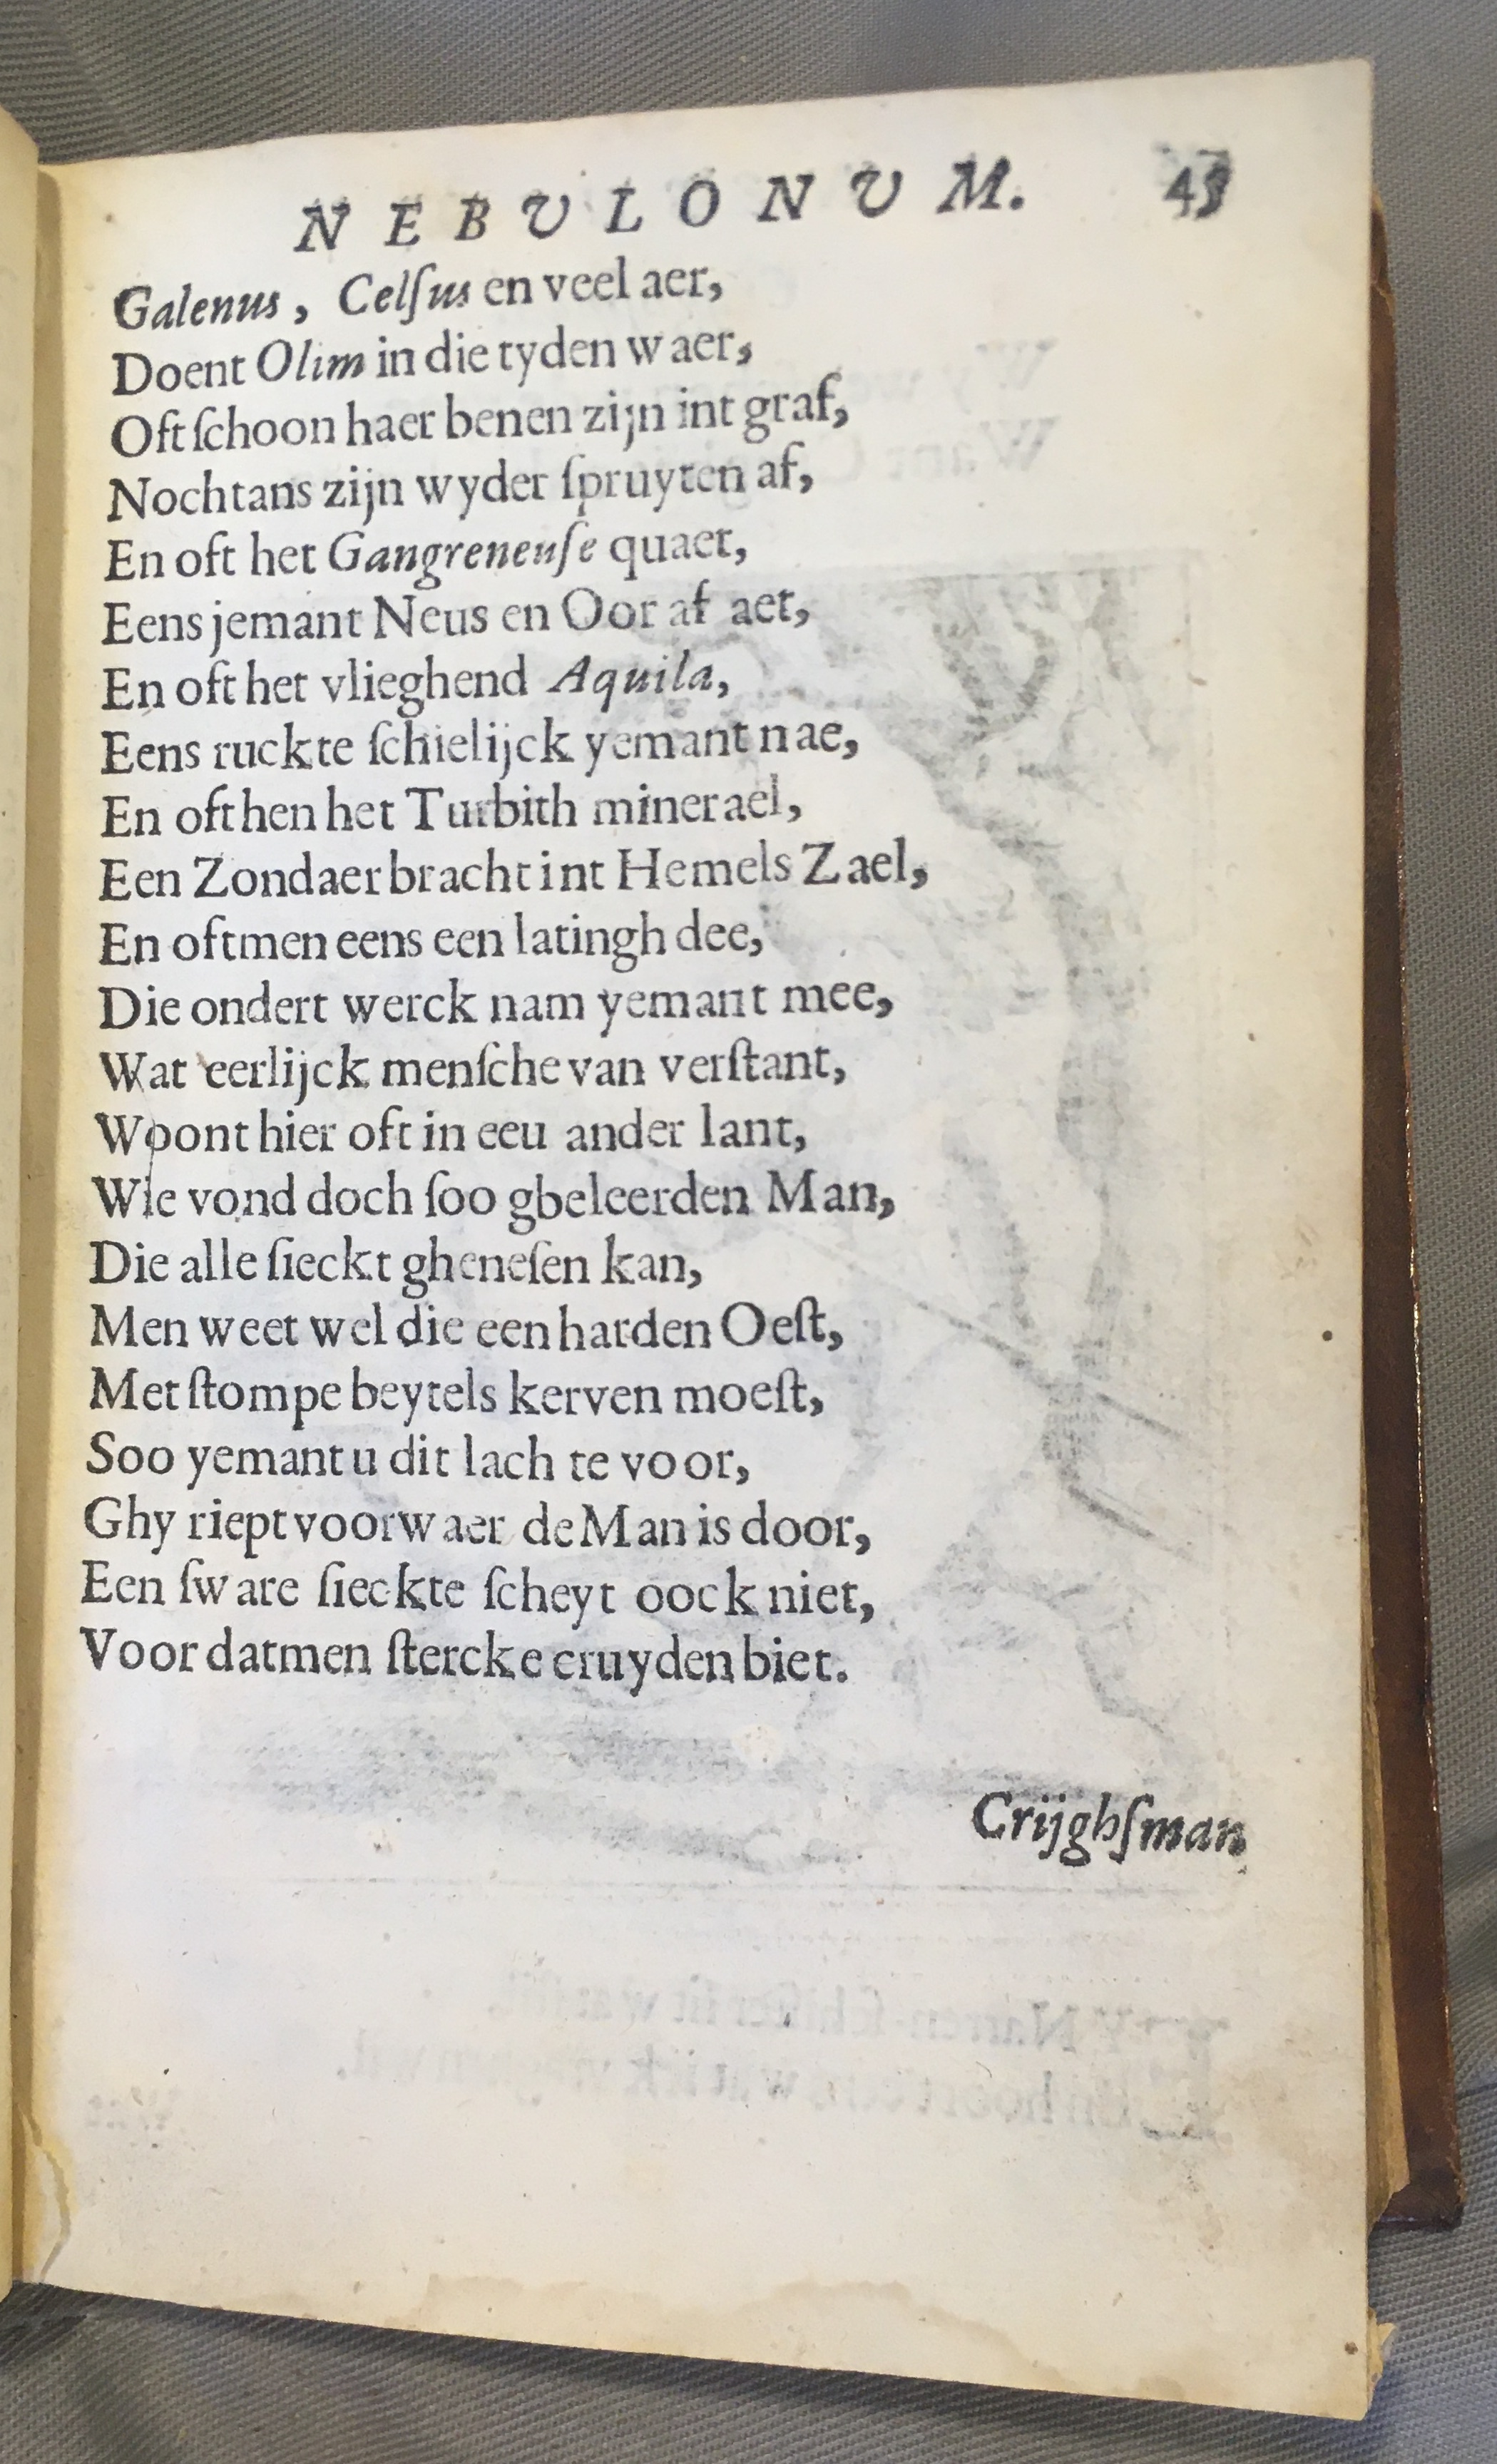 NEBVLONVM. 43
Galenus, Celſus en veel aer,
Doent Olim in die tyden waer,
Oft ſchoon haer benen zijn int graf,
Nochtans zijn wyder ſpruyten af,
En oft het Gangreneuſe quaet,
Eens jemant Neus en Oor af aet,
En oft het vlieghend Aquila,
Eens ruckte ſchielijck yemant nae,
En oft hen het Turbith minerael,
Een Zondaer bracht int Hemels Zael,
En oftmen eens een latingh dee,
Die ondert werck nam yemant mee,
Wat eerlijck menſche van verſtant,
Woont hier oft in eeu ander lant,
Wie vond doch ſoo gbeleerden Man,
Die alle ſieckt gheneſen kan,
Men weet wel die een harden Oeſt,
Met ſtompe beytels kerven moeſt,
Soo yemant u dit lach te voor,
Ghy riept voorwaer de Man is door,
Een ſware ſieckte ſcheyt oock niet,
Voor datmen ſtercke cruyden biet.
Crijghſman